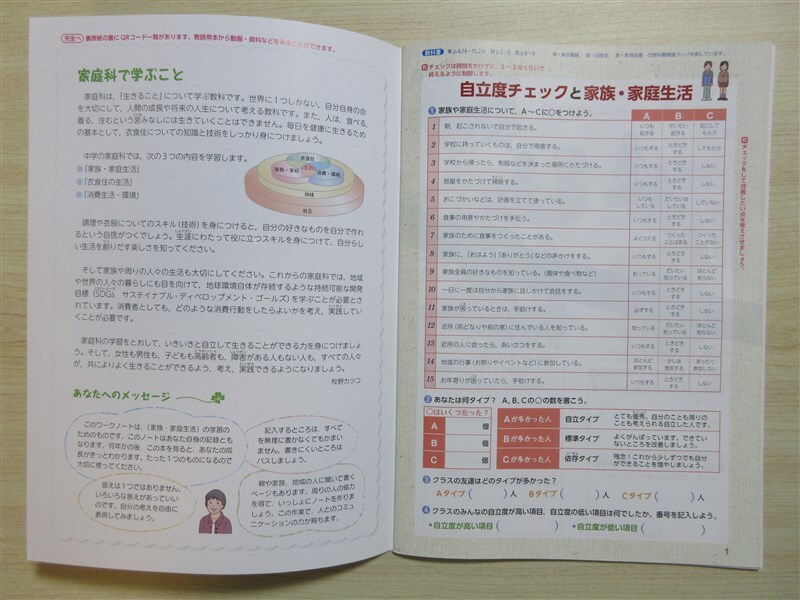 先生へ 裏表紙の裏にQRコード一覧があります。教師用本から動画・資料などをみることができます。
家庭科で学ぶこと
家庭科は、「生きること」について学ぶ教科です。世界に1つしかない、自分自身の命
を大切にして、人間の成長や将来の人生について考える教科です。また、人は、食べる、
着る、住むという営みなしには生きていくことはできません。毎日を健康に生きるため
の基本として、衣食住についての知識と技術をしっかり身につけましょう。
中学の家庭科では、次の3つの内容を学習します。
「家族・家庭生活」
「衣食住の生活」
「消費生活・環境」
衣食住
家族・家庭
生活
消費・環境
地域
社会
調理や衣服についてのスキル(技術)を身につけると、自分の好きなものを自分で作れ
るという自信がつくでしょう。生涯にわたって役に立つスキルを身につけて、自分らし
い生活を創りだす楽しさを知ってください。
そして家族や周りの人々の生活も大切にしてください。これからの家庭科では、地域
や世界の人々の暮らしにも目を向けて、地球環境自体が存続するような持続可能な開発
目標(SDGs サステイナブル・ディベロップメント・ゴールズ)を学ぶことが必要とさ
れています。消費者としても、どのような消費行動をしたらよいかを考え、実践してい
くことが必要です。
家庭科の学習をとおして、いきいきと自立して生きることができる力を身につけましょ
う。そして、女性も男性も、子どもも高齢者も、障害がある人もない人も、すべての人々
が、共によりよく生きることができるよう、考え、実践できるようになりましょう。
牧野カツコ
あなたへのメッセージ
このワークノートは、「家族・家庭生活」の学習の
ためのものです。このノートはあなた自身の記録とも
なります。何年かの後、この本を見ると、あなたの成
長がきっとわかります。たった1つのものになるので
大切に使ってください。
記入するところは、すべて
を無理に書かなくてもかまい
ません。書きにくいところは
パスしましょう。
答えは1つではありません。
いろいろな答えがあっていい
のです。自分の考えを自由に
表現してみましょう。
親や家族、地域の人に聞いて書く
ページもあります。周りの人の協力
を得て、いっしょにノートを作りま
しょう。この作業で、人とのコミュ
ニケーションの力が育ちます。
教科書
チェックは時間をかけずに、3~5分くらいで
終えるように制限します。
自立度チェックと家族・家庭生活
1 家族や家庭生活について、A~Cに○をつけよう。 A B C
1 朝、起こされないで自分で起きる。 いつも起きる だいたい起きる 起こしてもらう
2 学校に持っていくものは、自分で用意する。 いつもする ときどきする してもらう
3 学校から帰ったら、制服などを決まった場所にかたづける。 いつもする ときどきする しない
4 部屋をかたづけて掃除する。 いつもする ときどきする しない
5 おこづかいなどは、計画を立てて使っている。 いつもしている だいたいはしている していない
6 食事の用意やかたづけを手伝う。 いつもする ときどきする しない
7 家族のために食事をつくったことがある。 よくつくる つくったことはある つくったことがない
8 家族に、「おはよう」「ありがとう」などの声かけをする。 いつもする ときどきする しない
9 家族全員の好きなものを知っている。(趣味や食べ物など) 知っている だいたい知っている ほとんど知らない
10 一日に一度は自分から家族に話しかけて会話をする。 いつもする ときどきする しない
11 家族が困っているときは、手助けする。 必ずする ときどきする しない
12 近所(両どなりや前の家)に住んでいる人を知っている。 知っている だいたい知っている ほとんど知らない
13 近所の人に会ったら、あいさつをする。 いつもする ときどきする しない
14 地域の行事(お祭りやイベントなど)に参加している。 ほとんど参加する 少しは参加する まったく参加しない
15 お年寄りが困っていたら、手助けする。 いつもする ときどきする しない
チェックをして改善したい点を考えさせましょう。
2 あなたは何タイプ? A、B、Cの○の数を書こう。
○はいくつだった?
A 個
B 個
C 個
Aが多かった人 自立タイプ とても優秀。自分のことも周りの
ことも考えられる自立した人です。
Bが多かった人 標準タイプ よくがんばっています。できてい
ないところを改善しましょう。
Cが多かった人 依存タイプ 残念!これから少しずつでも自分
ができることを増やしましょう。
3 クラスの友達はどのタイプが多かった?
Aタイプ( )人 Bタイプ( )人 Cタイプ( )人
4 クラスのみんなの自立度が高い項目、自立度の低い項目は何でしたか。番号を記入しよう。
・自立度が高い項目( ) ・自立度が低い項目( )
1